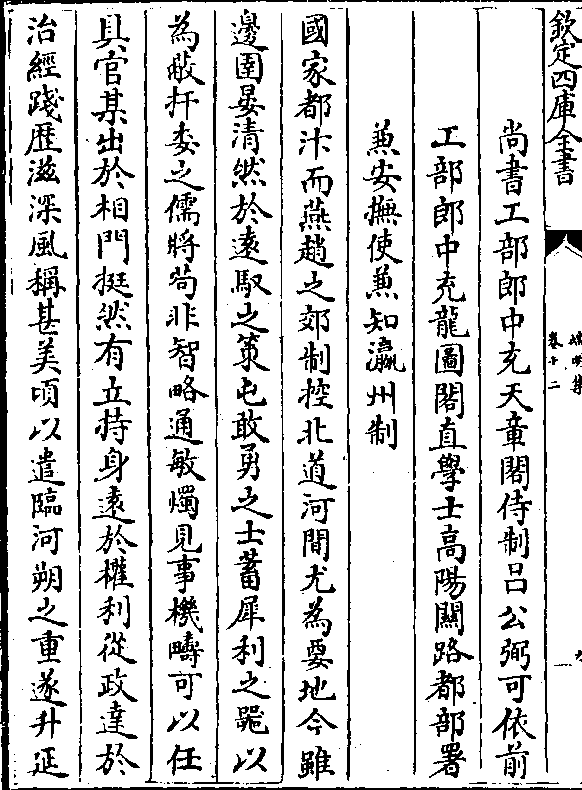 欽定四庫全書
卷十二
尚書工部郎中充天章閣侍制吕公弼可依前
工部郎中充龍圖閣直學士高陽關路都部署
兼安撫使兼知瀛州制
國家都汴而燕趙之郊制控北道河間尤為要地今雖
邊圉晏清然於遠馭之策屯敢勇之士蓄犀利之器以
為蔽扞委之儒將茍非智略通敏燭見事機疇可以任
具官某出於相門挺然有立持身遠於權利從政達於
治經踐歴滋深風稱甚美頃以遣臨河朔之重遂升延